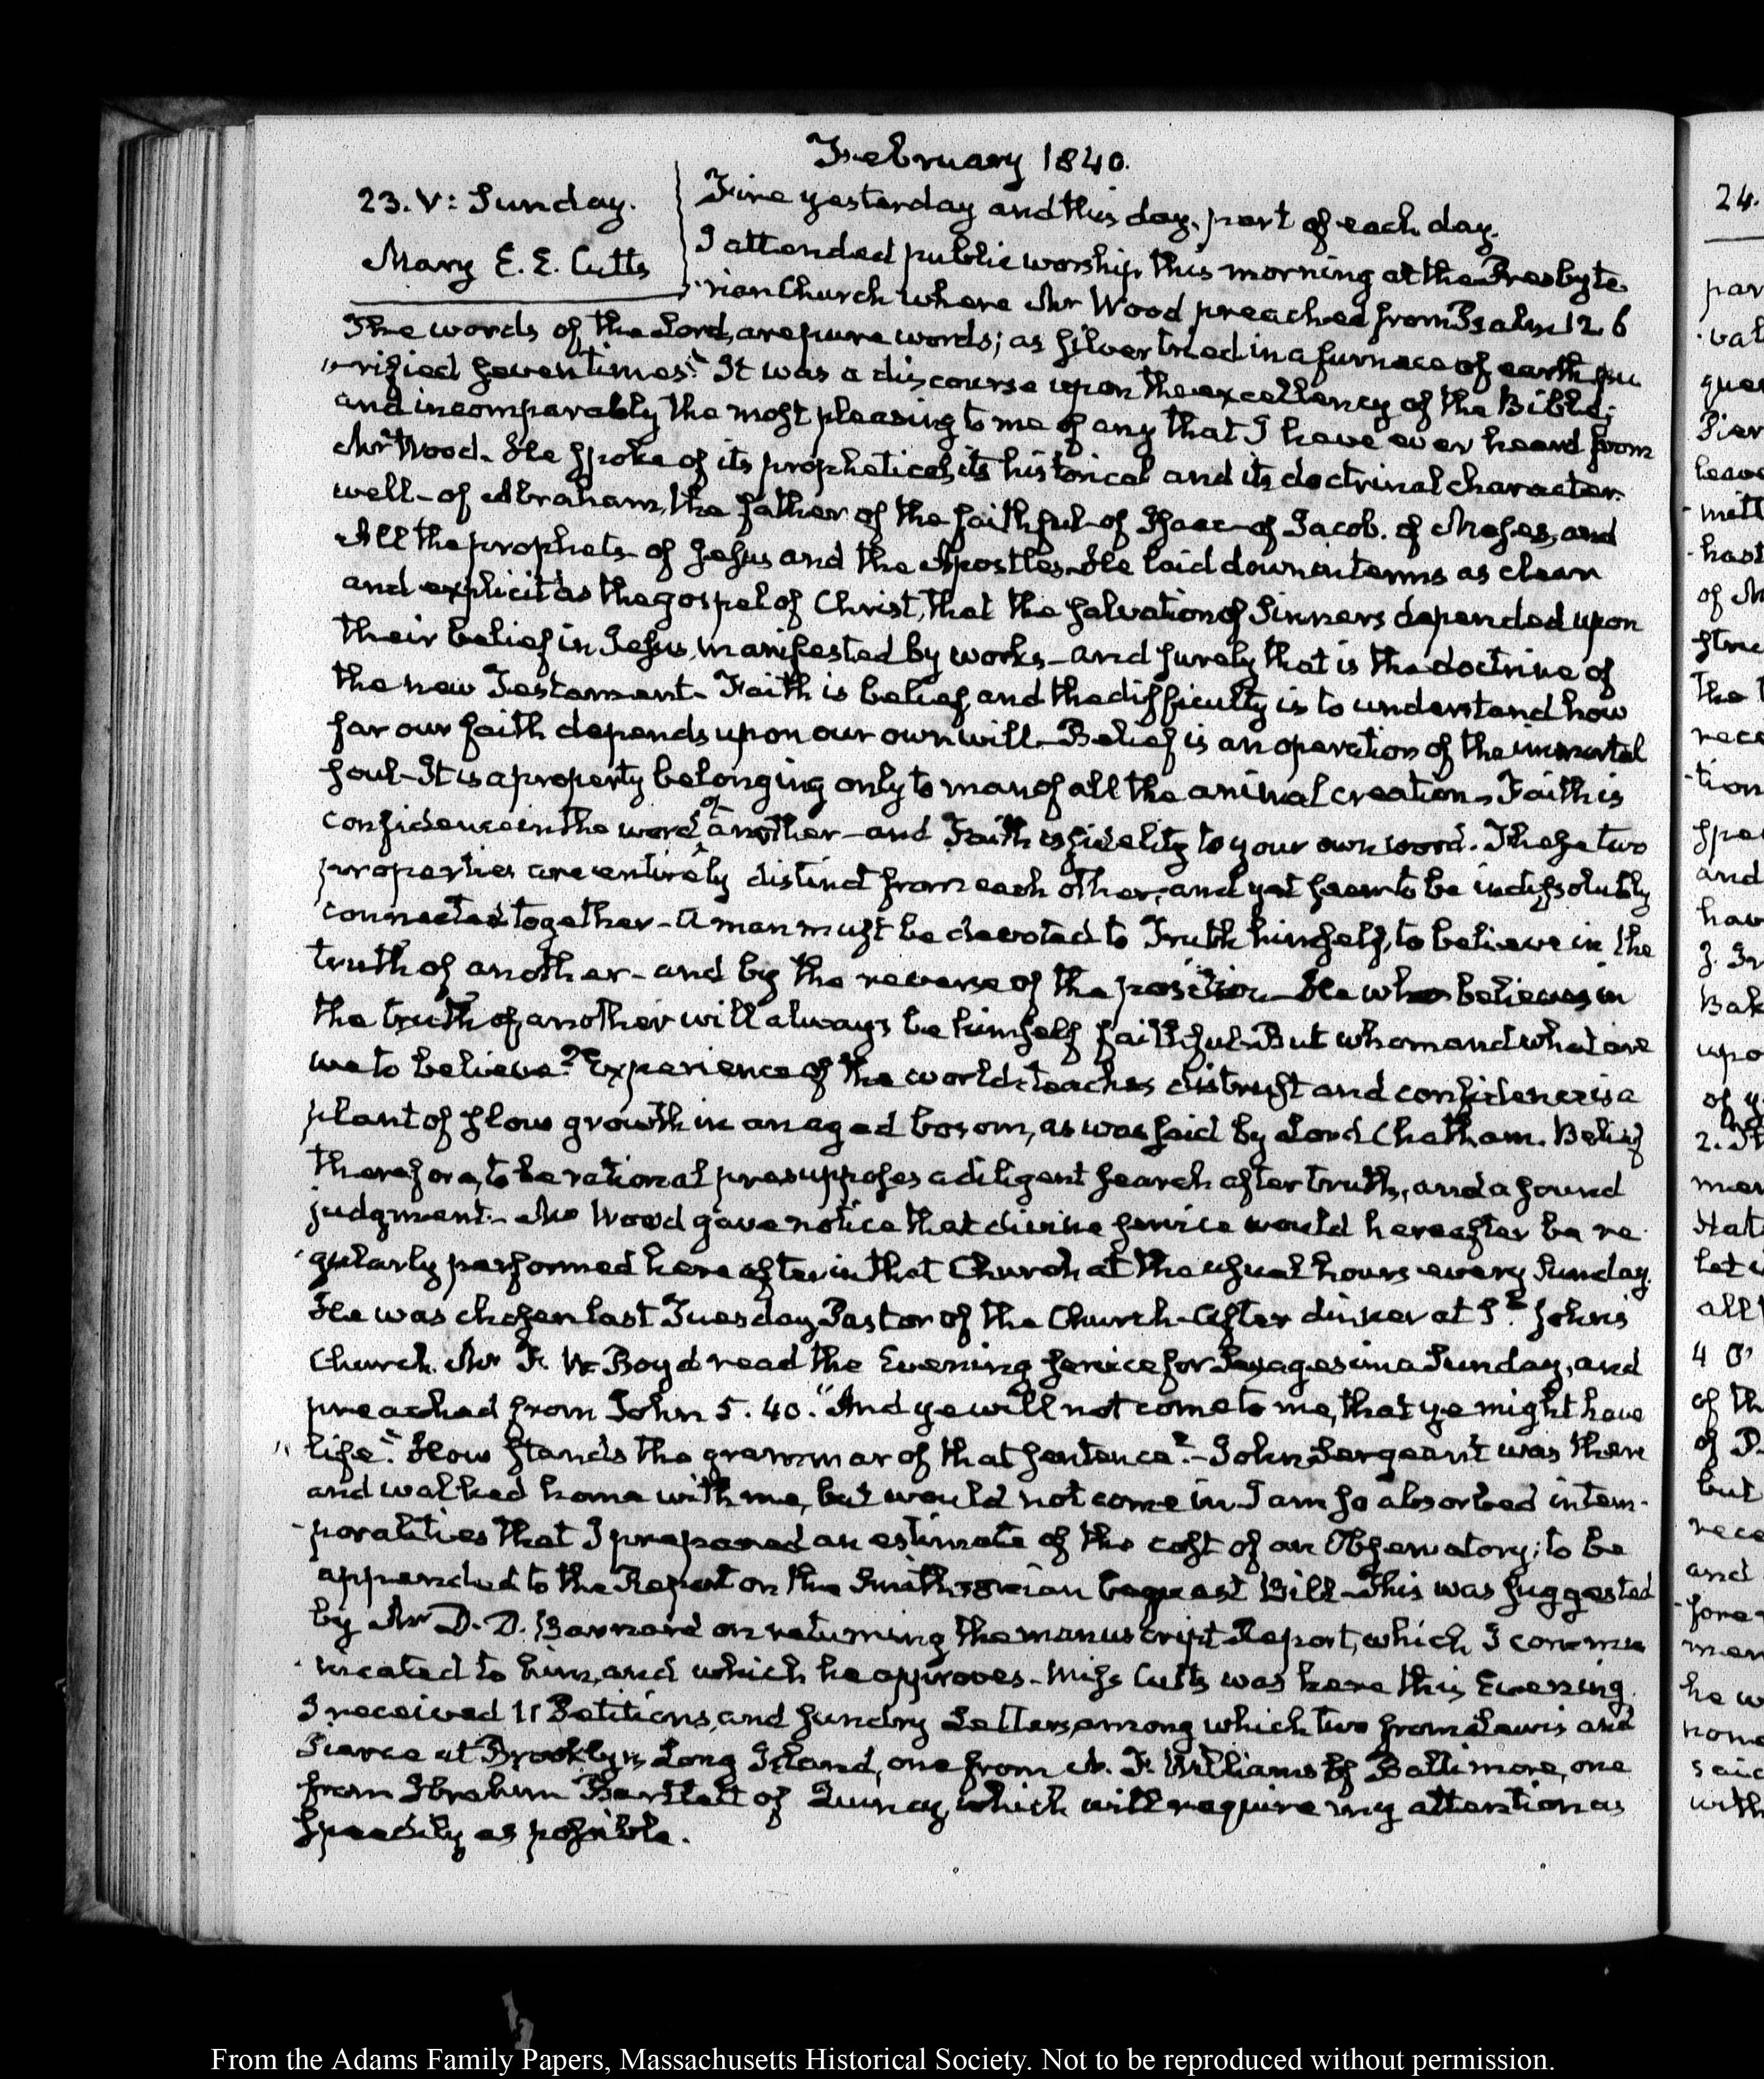 February 1840.
23. V: Sunday.
Mary E. E. Cutts
Fine yesterday and this day, part of each day.
I attended public worship this morning at the Presbyte
rian Church where Mr Wood preached from Psalm 12. 6
The words of the Lord, are pure words; as silver tried in a furnace of earth pu
"rified seven times." It was a discourse upon the excellency of the Bible;
and incomparably the most pleasing to me of any that I have ever heard from
Mr Wood. He spoke of its prophetical, its historical and its doctrinal character.
well- of Abraham, the father of the faithful- of Isaac- of Jacob. of Moses, and
All the prophets- of Jesus and the Apostles- He laid down in terms as clear
and explicit as the gospel of Christ, that the salvation of Sinners depended upon
their belief in Jesus, manifested by works- and surely that is the doctrine of
the new Testament- Faith is belief, and the difficulty is to understand how
far our faith depends upon our own will- Belief is an operation of the immortal
soul- It is a property belonging only to man of all the animal creation- Faith is
confidence in the word of another- and Faith is fidelity to your own word. These two
properties are entirely distinct from each other, and yet seem to be indissolubly
connected together- A man must be devoted to Truth himself, to believe in the
truth of another- and by the reverse of the position- He who believes in
the truth of another will always be himself faithful- But whom and what are
we to believe? Experience of the world teaches distrust and confidence is a
plant of slow growth in an aged bosom, as was said by Lord Chatham. Belief
therefore, to be rational presupposes a diligent search after truth, and a sound
judgment.- Mr Wood gave notice that divine service would hereafter be re
gularly performed hereafter in that Church at the usual hours every Sunday.
He was chosen last Tuesday Pastor of the Church- After dinner at St. John's
Church. Mr F. W. Boyd read the Evening service for Sexagesima Sunday, and
preached from John 5. 40. "And ye will not come to me, that ye might have
"life." How stands the grammar of that sentence?- John Sergeant was there
and walked home with me, but would not come in. I am so absorbed in tem-
-poralities that I prepared an estimate of the cost of an Observatory; to be
appended to the Report on the Smithsonian bequest Bill- This was suggested
by Mr D. D. Barnard on returning the manuscript Report, which I commu
nicated to him, and which he approves- Miss Cutts was here this Evening.
I received 11 Petitions, and sundry Letters, among which two from Lewis and
Pierce at Brooklyn, Long Island, one from N. F. Williams of Baltimore, one
from Ibrahim Bartlett of Quincy, which will require my attention as
speedily as possible.
From the Adams Family Papers, Massachusetts Historical Society. Not to be reproduced without permission.